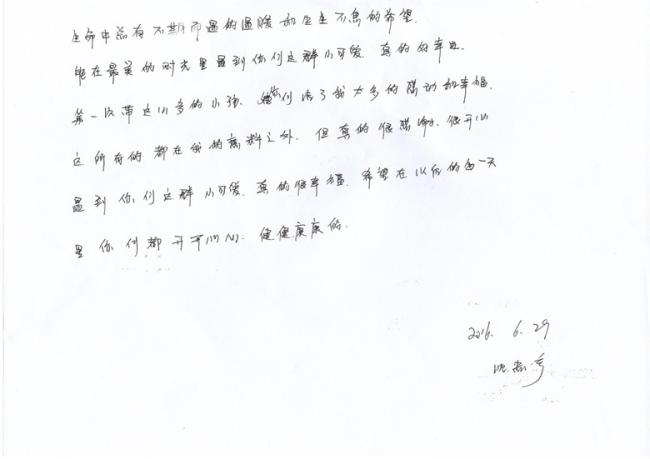 生命中总有不期而遇的温暖和生生不息的希望.
能在最美的时光里遇到你们这群小可爱. 真的好幸运.
第一次带这么多的小孩. 你们给了我太多的感动和幸福.
这所有的都在我的意料之外. 但真的很感动. 很开心
遇到你们这群小可爱. 真的很幸福. 希望在以后的每一天
里你们都开开心心. 健健康康的.
2016. 6. 29